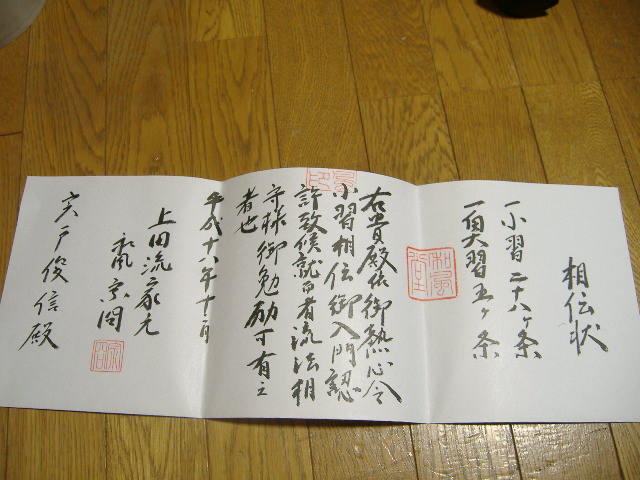 相伝状
一小習二十八ヶ条
一真習五ヶ条
和風堂
右貴殿依御熱心令
小習相伝御入門認
許致候就而者流法相
守様御勉励可有之
者也
平成十八年十一月
上田流家元
宗冏
宍戸俊信殿